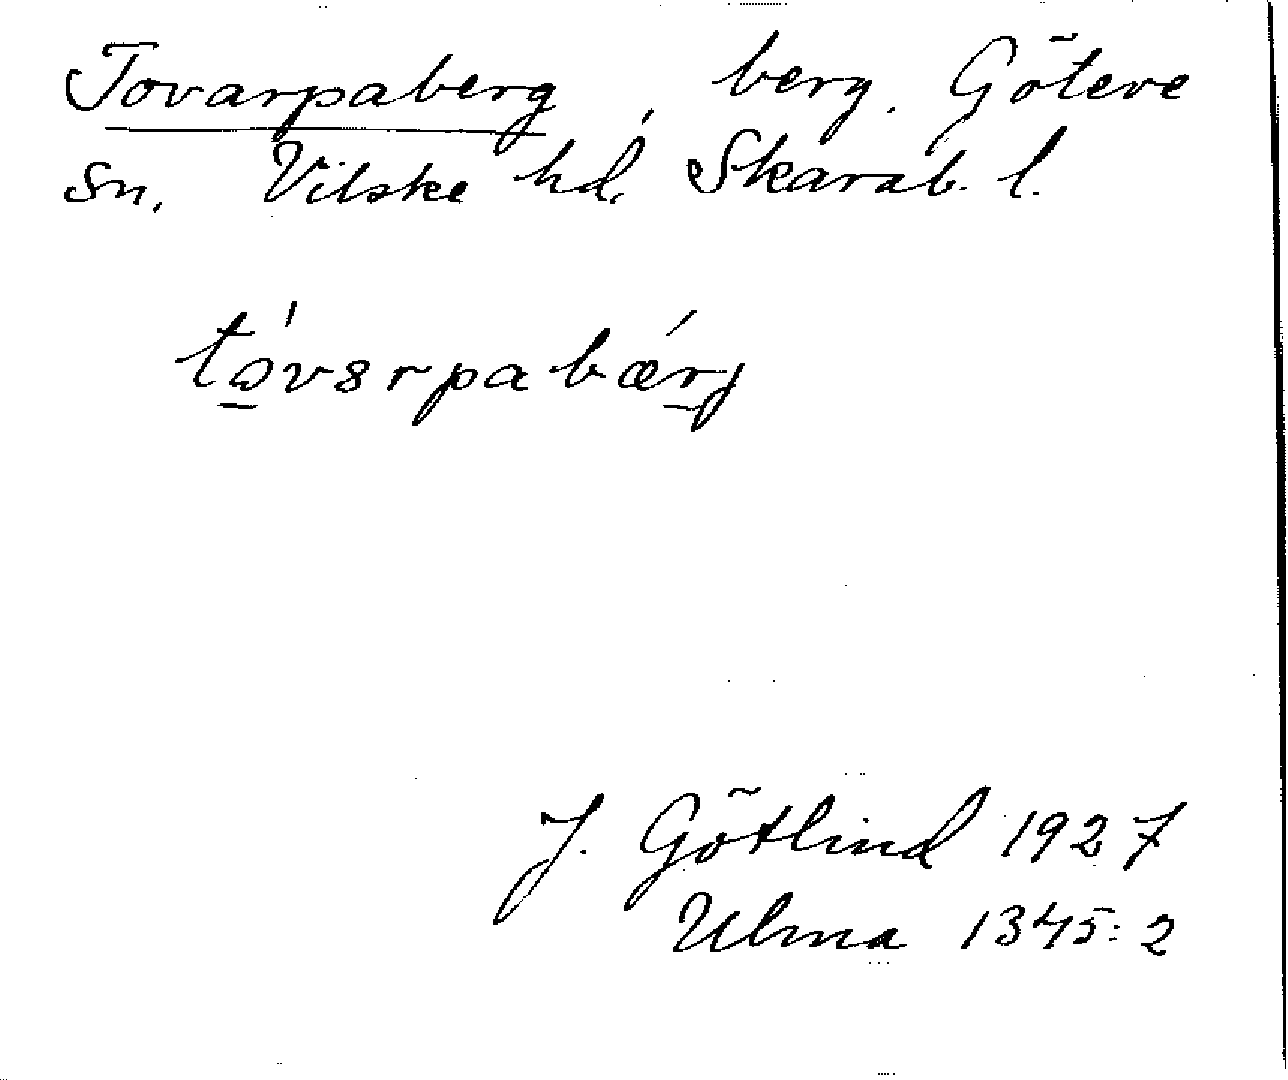 Tovarpaberg, berg. Göteve
sn. Vilske hd, Skarab. l.
tə̠́vərpabǽr̠j
J. Götlind 1927
Ulma 1345:2